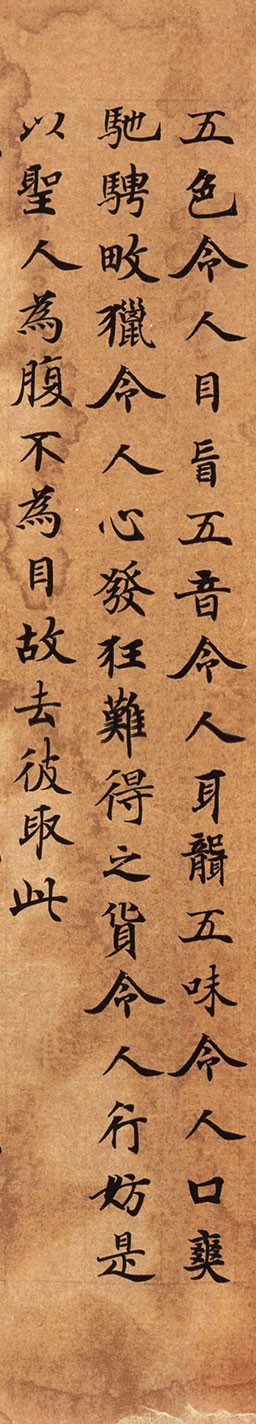 五色令人目盲五音令人耳聾五味令人口爽
馳騁畋獵令人心發狂難得之貨令人行妨是
以聖人為腹不為目故去彼取此